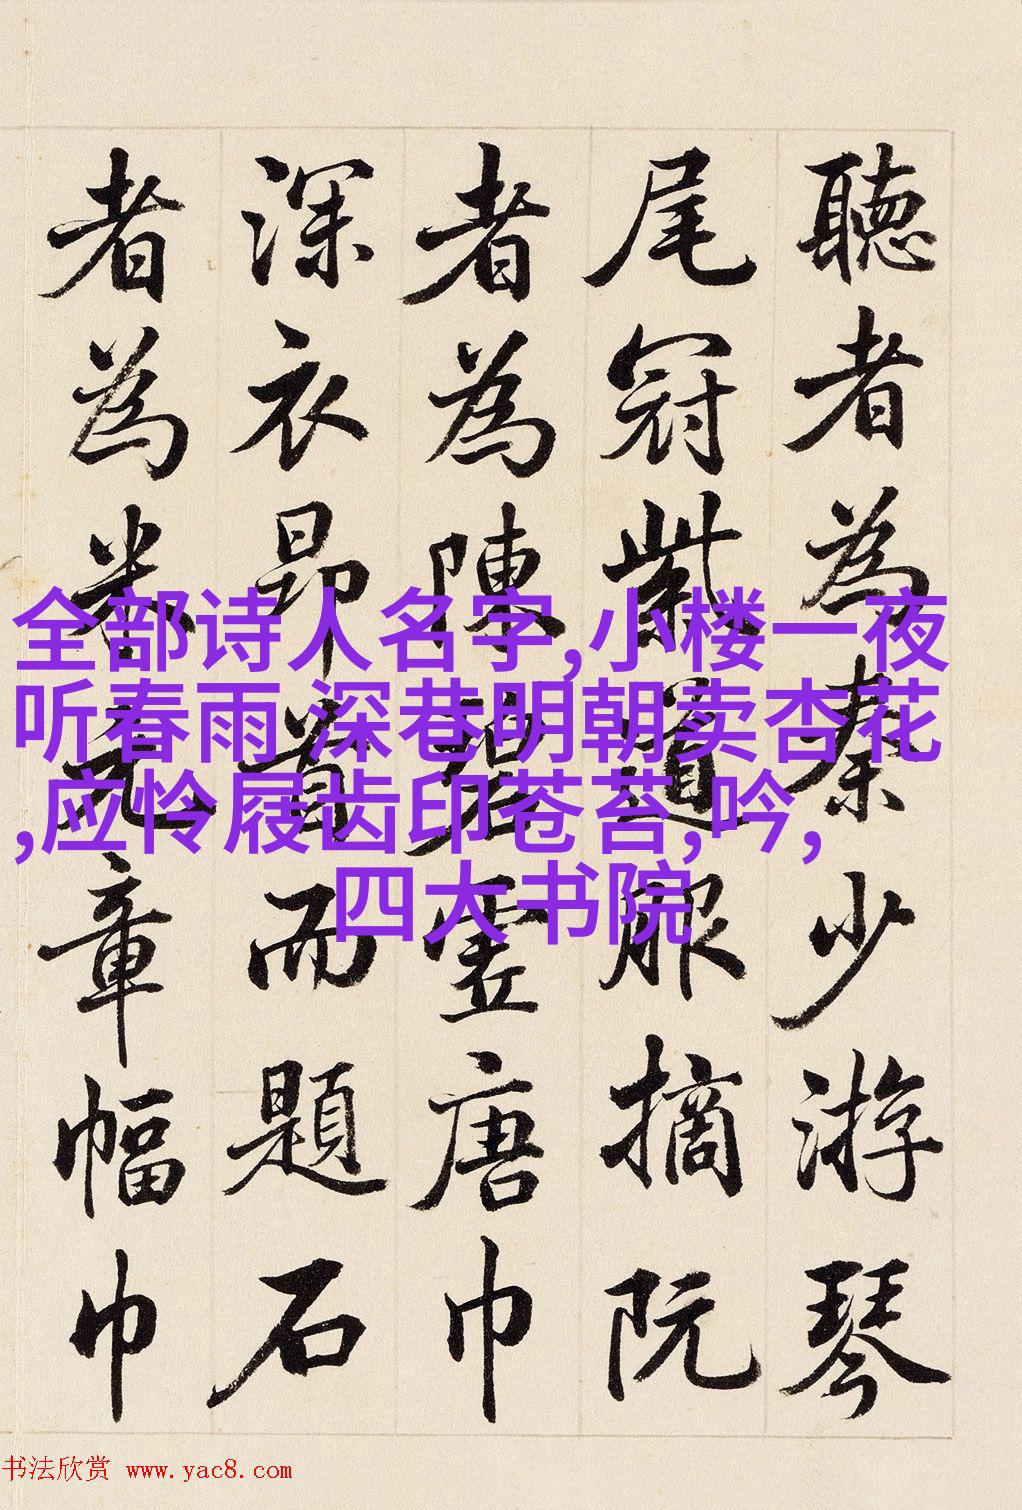 聽者為秦少游琴
尾冠紫道服摘阮
者為陳碧虛唐巾
深衣昂首而題石
者為米元章幅巾
全部诗人名字,小楼一夜
听春雨 深巷明朝卖杏花
,应怜屐齿印苍苔,吟,
四大书院
书法欣赏 www.yac8.com